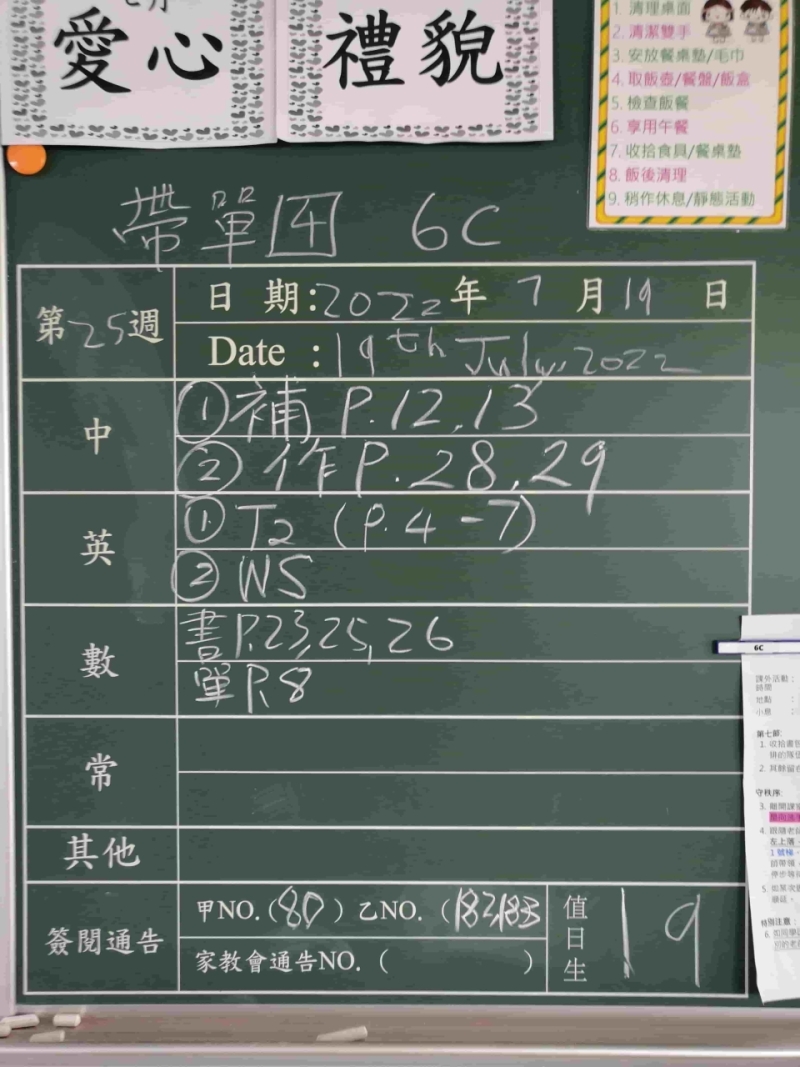 愛心
禮貌
1. 清理桌面
2. 清潔雙手
3. 安放餐桌墊/毛巾
4. 取飯壺/餐盤/飯盒
5. 檢查飯餐
6. 享用午餐
7. 收拾食具/餐桌墊
8. 飯後清理
9. 稍作休息/靜態活動
帶單 4 6C
第25週
日期:2022年7月19日
Date :19th July, 2022
中
① 補 P.12,13
② 作 P.28,29
英
① T2 (P.4-7)
② WS
數
書 P.23,25,26
單 P.8
常
其他
簽閱通告
甲NO.(80) 乙NO. (182,183)
家教會通告NO. ( )
值日生
19
6C
課外活動:
時間
地點 :
小息 :
第七節:
守秩序:
特別注意: